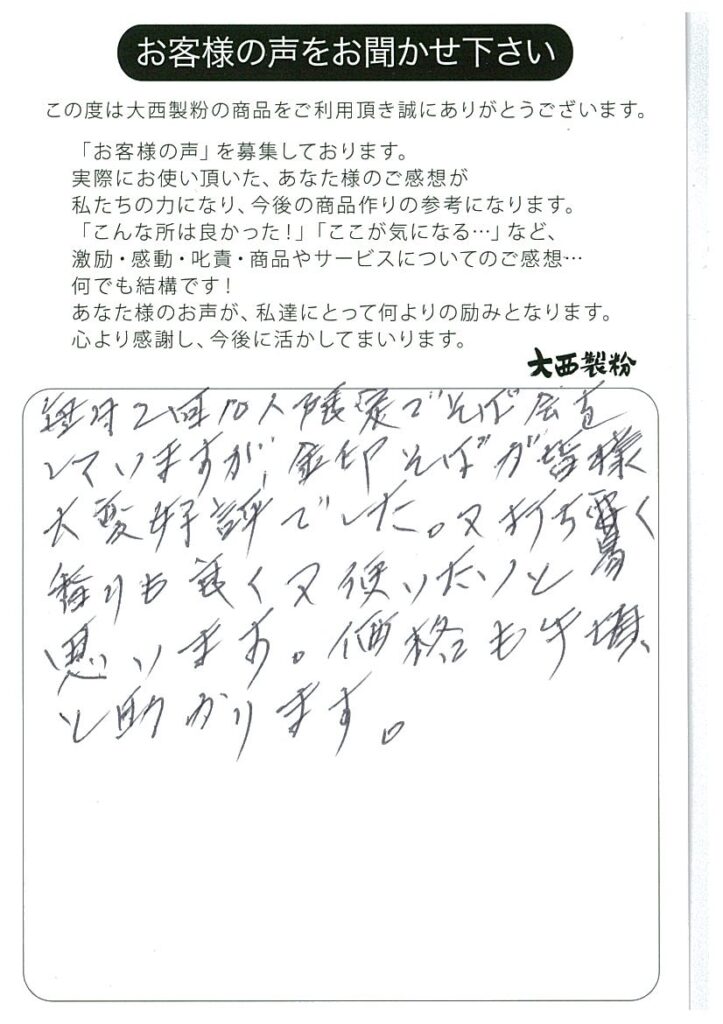 お客様の声をお聞かせ下さい
この度は大西製粉の商品をご利用頂き誠にありがとうございます。
「お客様の声」を募集しております。
実際にお使い頂いた、あなた様のご感想が
私たちの力になり、今後の商品作りの参考になります。
「こんな所は良かった！」「ここが気になる…」など、
激励・感動・叱責・商品やサービスについてのご感想…
何でも結構です！
あなた様のお声が、私達にとって何よりの励みとなります。
心より感謝し、今後に活かしてまいります。
大西製粉
毎月2回10人限定でそば会を
していますが、金印そばが皆様
大変好評でした。又打ち易く
香りも良く又使いたいと
思います。価格も手頃、
と助かります。